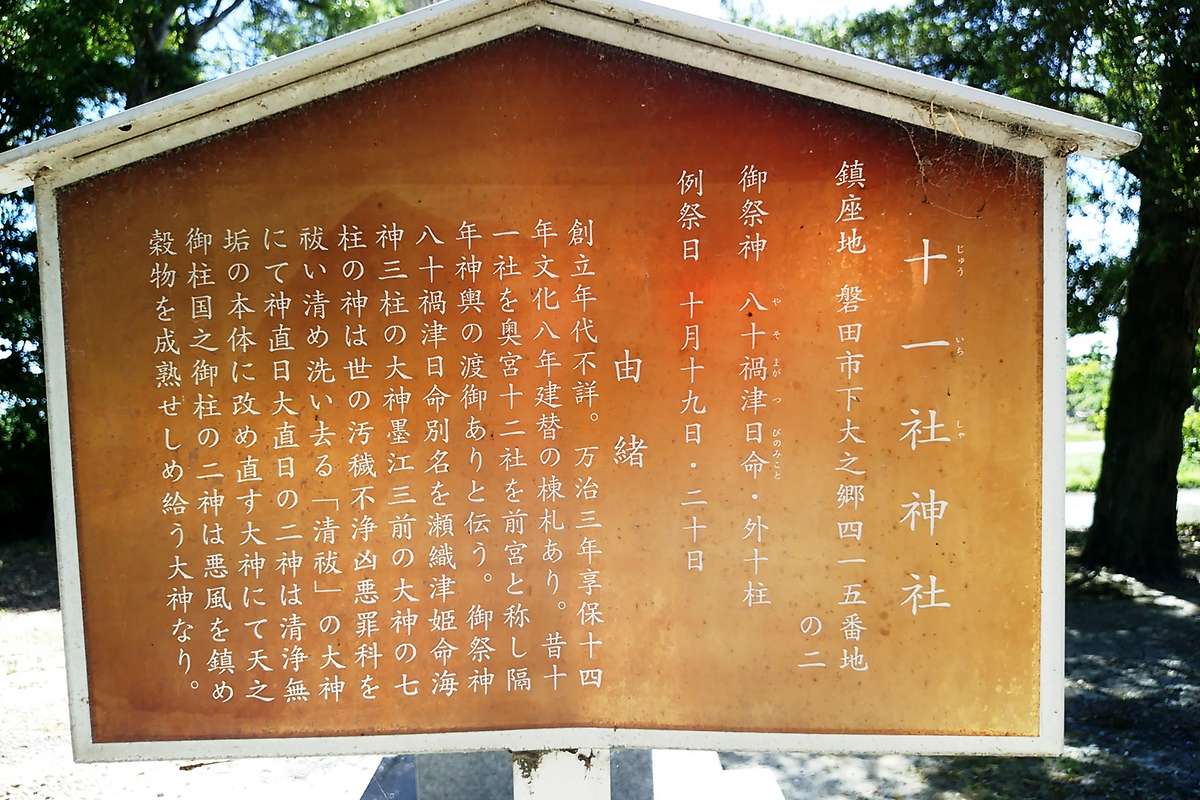 十一社神社
じゅういちしゃ
鎮座地 磐田市下大之郷四一五番地
の二
御祭神 八十禍津日命・外十柱
やそまがつびのみこと
例祭日 十月十九日・二十日
由緒
創立年代不詳。万治三年享保十四
年文化八年建替の棟札あり。昔十
一社を奥宮十二社を前宮と称し隔
年神輿の渡御ありと伝う。御祭神
八十禍津日命別名を瀬織津姫命海
神三柱の大神墨江三前の大神の七
柱の神は世の汚穢不浄凶悪罪科を
祓い清め洗い去る「清祓」の大神
にて神直日大直日の二神は清浄無
垢の本体に改め直す大神にて天之
御柱国之御柱の二神は悪風を鎮め
穀物を成熟せしめ給う大神なり。